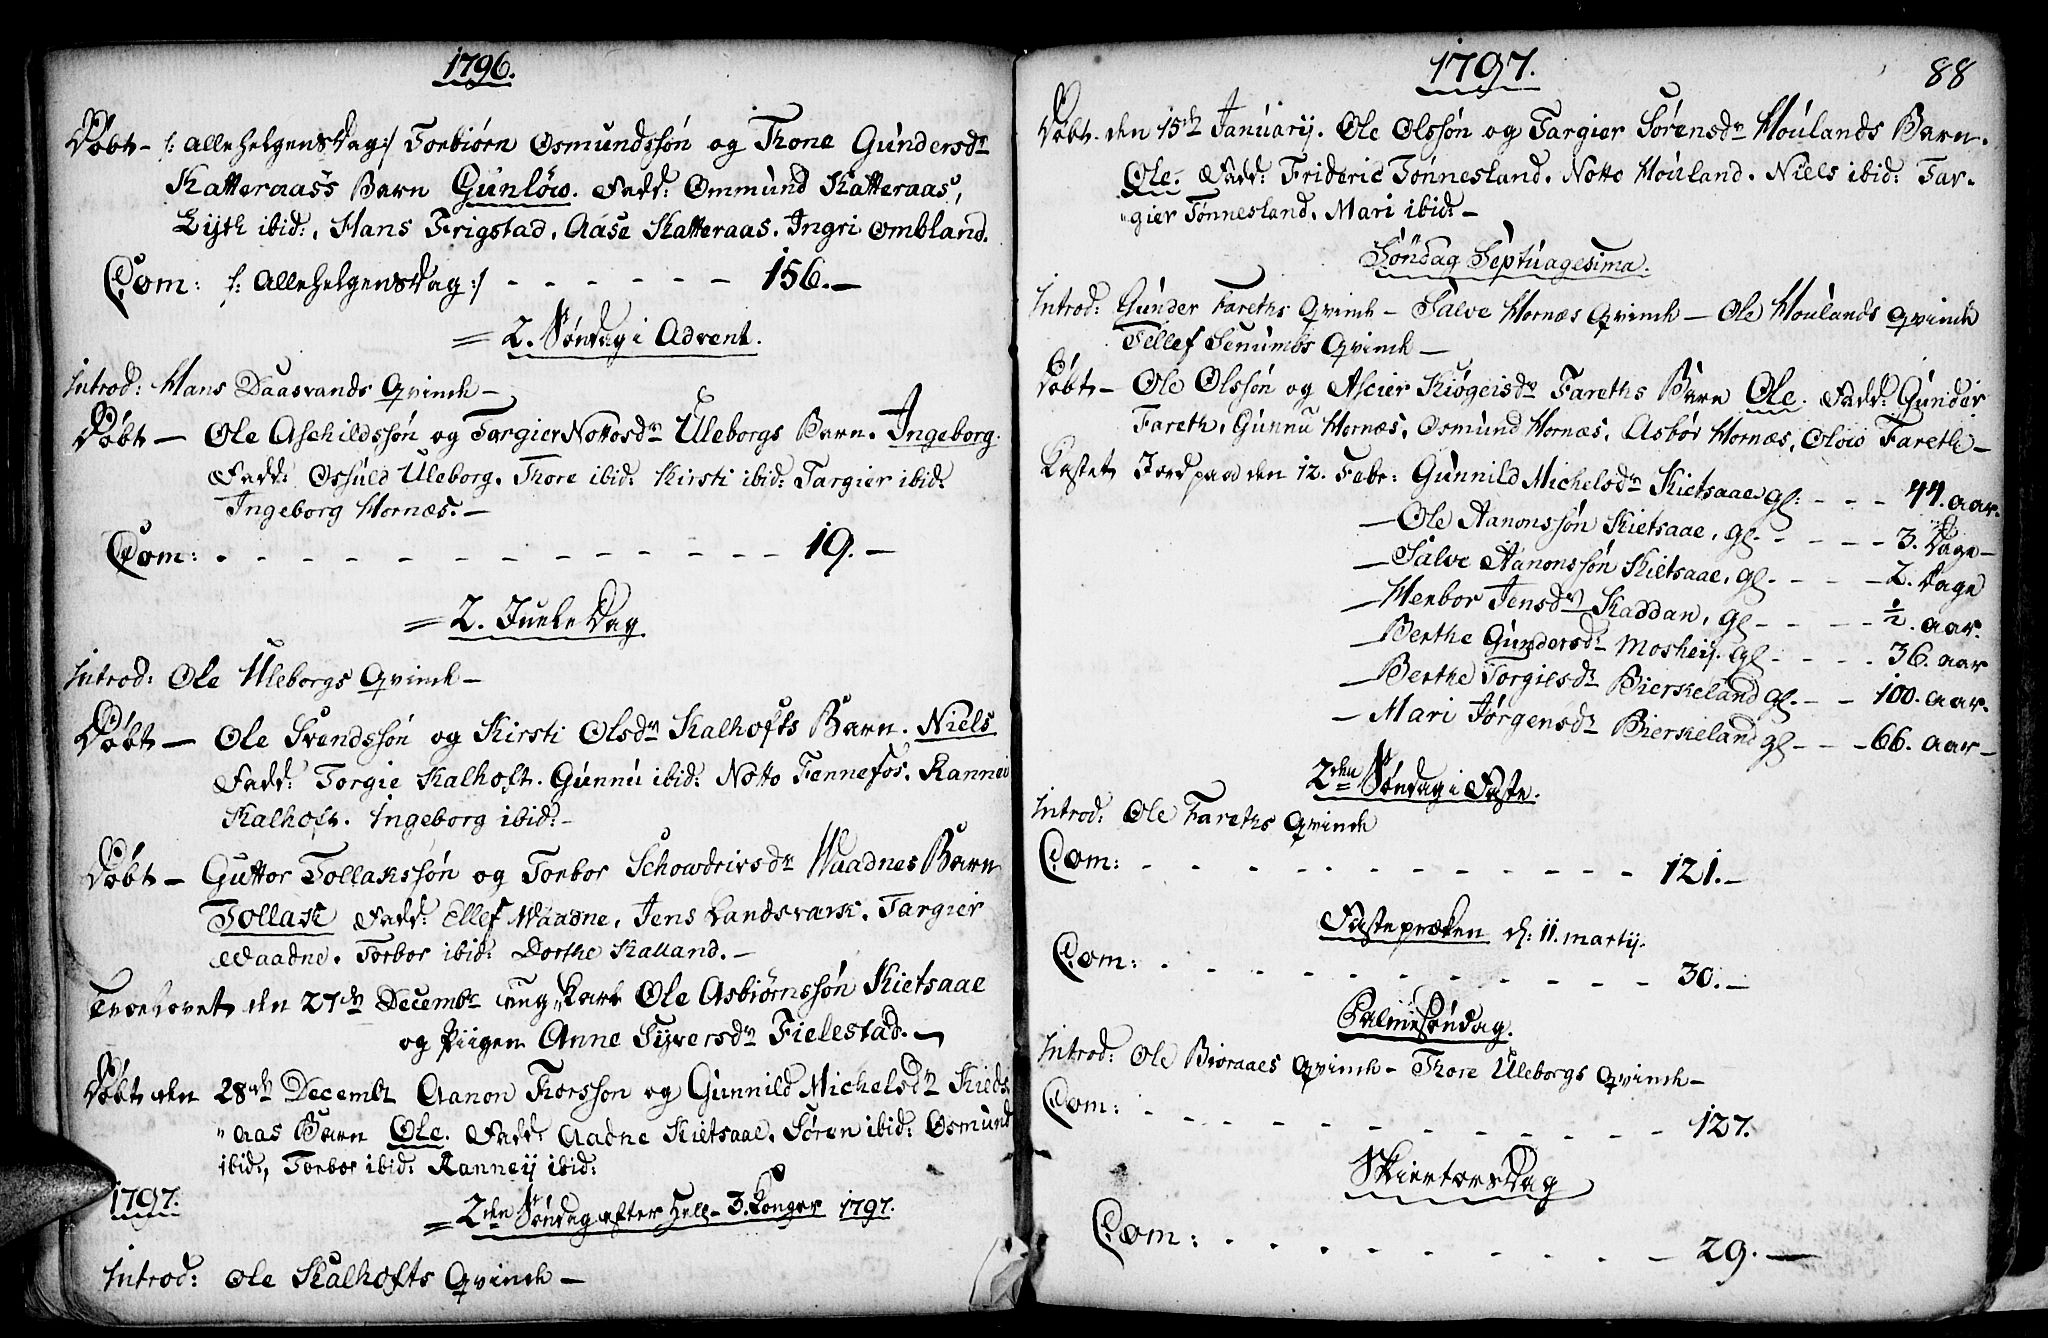 1796.
Døbt – /: Allehelgensdag :/ Torbiørn Osmundssøn og Thone Gundersdr
Katteraass Barn Gunløw. Fadd: Ommund Katteraas,
Lijth ibid:, Hans Frigstad, Aase Katteraas, Ingri Ombland.
Com: /: Allehelgensdag :/ - - - - - - 156. –
= 2. Søndag i Advent.
Introd: Hans Daasvands Qvinde –
Døbt – Ole Aschildssøn og Targier Nottosdr Uleborgs Barn. Ingeborg.
Fadd: Osuld Uleborg. Thore ibid: Kirsti ibid: Targier ibid:
Ingeborg Hornæs. –
Com: - - - - - - - - - - - - - 19. –
= 2. Juele Dag.
Introd: Ole Uleborgs Qvinde –
Døbt – Ole Svendssøn og Kirsti Olsdr Kalhofts Barn. Niels
Fadd: Torgie Kalhoft. Gunnu ibid: Notto Fennefos. Rannei
Kalhoft. Ingeborg ibid: –
Døbt – Guttor Tollakssøn og Torbor Schowdrivsdr Waadnes Barn
Tollak Fadd: Ellef Waadne, Jens Landsværk. Targier
Waadne. Torbor ibid: Dorthe Kalland. –
Troelovet den 27de Decembr ung Karl Ole Asbiørnssøn Kietsaae
og Piigen Anne Syversdr Fielestad. –
Døbt den 28de Decembr Aanon Thorsson og Gunnild Michelsdr Kieds
"aas Barn Ole. Fadd: Aadne Kietsaae. Søren ibid: Osmund
ibid:, Torbor ibid: Ranneij ibid:
1797.
= 2den Søndag efter Hell- 3. Konger 1797.
Introd: Ole Kalhofts Qvinde –
1797.
88
Døbt. den 15de Januarij. Ole Olssøn og Targier Sørensdr Houlands Barn.
Ole. Fadd: Frideric Tønnesland. Notto Houland. Niels ibid: Tar-
"gier Tønnesland. Mari ibid: –
Søndag Septuagesima.
Introd: Gunder Fareths Qvinde – Salve Hornæs Qvinde – Ole Houlands Qvinde
Tellef Senumbs Qvinde –
Døbt – Ole Olssøn og Asier Kiøgeisdr Fareths Barn Ole. Fadd: Gunder
Fareth. Gunnu Hornæs. Osmund Hornæs. Asbor Hornæs. Oløw Fareth –
Kastet Jord paa den 12. Febr: Gunnild Michelsdr Kietsaae gl: - - - 44. aar.
– Ole Aanonssøn Kietsaae, gl - - - - - 3. Dage –
– Salve Aanonssøn Kietsaae, gl - - - - - 2. Dage
– Herbor Jensdr Kaddan, gl - - - - - ½. aar.
– Berthe Gundersdr Mosheij. gl - - - - - 36. aar
– Berthe Torgiesdr Bierkeland gl - - - 100. aar.
– Mari Jørgensdr Bierkeland gl - - - 66. aar –
2den Søndag i Faste.
Introd: Ole Fareths Qvinde
Com: - - - - - - - - - - - - - 121. –
Fasteprœken d: 11. martij.
Com: - - - - - - - - - - - - - 30. –
Palmesøndag.
Introd: Ole Bioraaes Qvinde – Thore Uleborgs Qvinde –
Com: - - - - - - - - - - - - - 127.
Skiertorsdag
Com: - - - - - - - - - - - 29. –